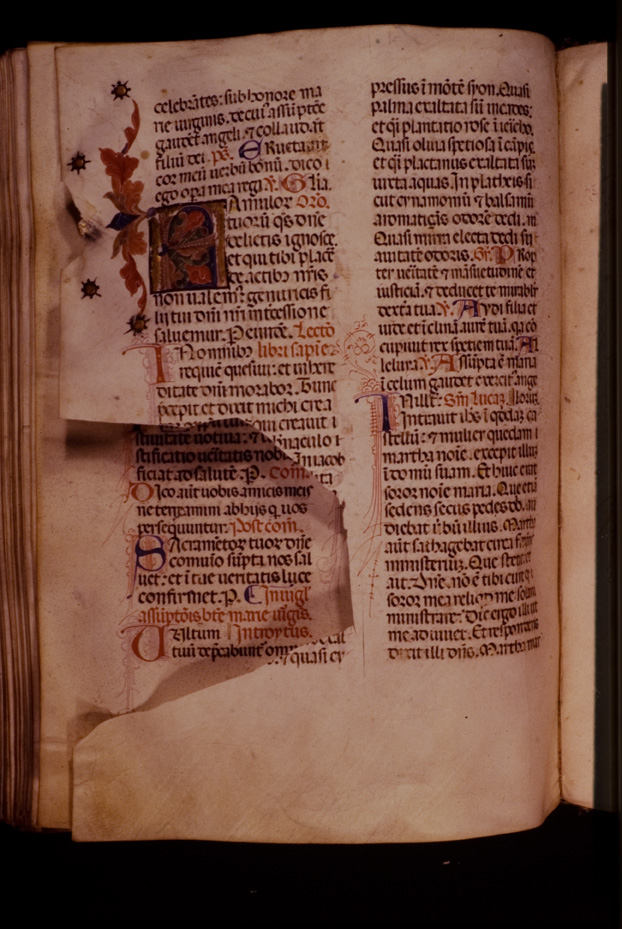 celebrãtes: sub honore ma
rie virginis. de cui assũptõe
gaudẽt angeli ⁊ collaudãt
filiũ dei. p̃s. Eructavit
cor meũ verbũ bonũ. dico
ego opa mea regi. Gl̃ia.
Famulor Oro.
tuorũ qs dñe
delictis ignosce.
et qui tibi place
re de actibꝫ nr̃is
non valemꝰ genitricis fi
lij tui dñi nr̃i intcessione
salvemur. P eundẽ. Lectõ
In omnibꝫ libri sapiẽ
requiẽ quesivi: et in here
ditate dñi morabor. Tunc
precepit et dixit michi crea
qui creavit
in iacob
stificatio
ficiat ad salutẽ. P. Com̃.
Dico aũt vobis amicis meis
ne terreamini ab hijs q vos
persequuntur. Post com̃.
Sacramẽtor tuor dñe
com̃uio sũpta nos sal
vet: et ĩ tue veritatis luce
confirmet. P. In vigl̃
assũptõis bte marie vĩgis.
Vultum Introytus.
tuũ depcabunt om
quasi cy
pressus ĩ mõte syon. Quasi
palma exaltata sũ in cades:
et q̃i plantatio rose ĩ iericho.
Quasi oliva spetiosa ĩ cãpis.
et q̃i plactanus exaltata sũ
iuxta aquas. In plateis si
cut cynamomũ ⁊ balsamũ
aromatiçãs odorẽ dedi.
Quasi mirra electa dedi su
avitatẽ odoris. Gr̃. Prop
ter veritatẽ ⁊ mãsuetudinẽ et
iusticiã. ⁊ deducet te mirabilr̃
dextra tua. Audi filia et
vide et ĩclinã aurẽ tuã. q̃ cõ
cupivit rex spetiem tuã. Al
leluia. Assũpta ẽ maria
ĩ celum gaudet exercitꝰ ange
In illo: Sm̃ lucaz. lloruz.
Intravit ihs ĩ qddaz ca
stellũ: ⁊ mulier quedam
martha noĩe. excepit illuz
ĩ domũ suam. Et huic erat
soror noĩe maria. Que etiã
sedens secus pedes dñi. au
diebat verbũ illius. Martha
aũt satagebat circa freqns
ministeriuz. Que stetit et
ait. Dñe. nõ ẽ tibi cure q
soror mea reliqt me solam
ministrare: Dic ergo illi ut
me adiuvet. Et respondens
dixit illi dñs. Martha mar